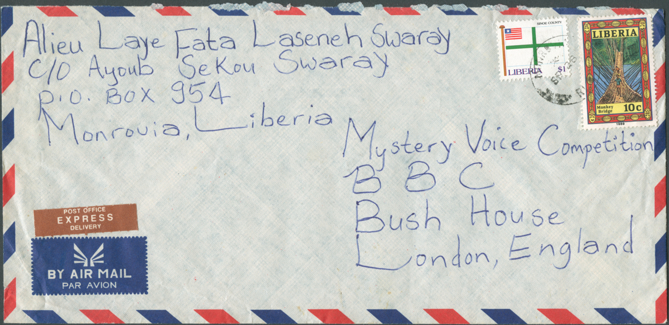 Alieu Laye Fata Laseneh Swaray
C/O Ayoub Sekou Swaray
P.O. Box 954
Monrovia, Liberia
LIBERIA $1
LIBERIA
Monkey Bridge
10c
Mystery Voice Competition
BBC
Bush House
London, England
POST OFFICE
EXPRESS
DELIVERY
BY AIR MAIL
PAR AVION